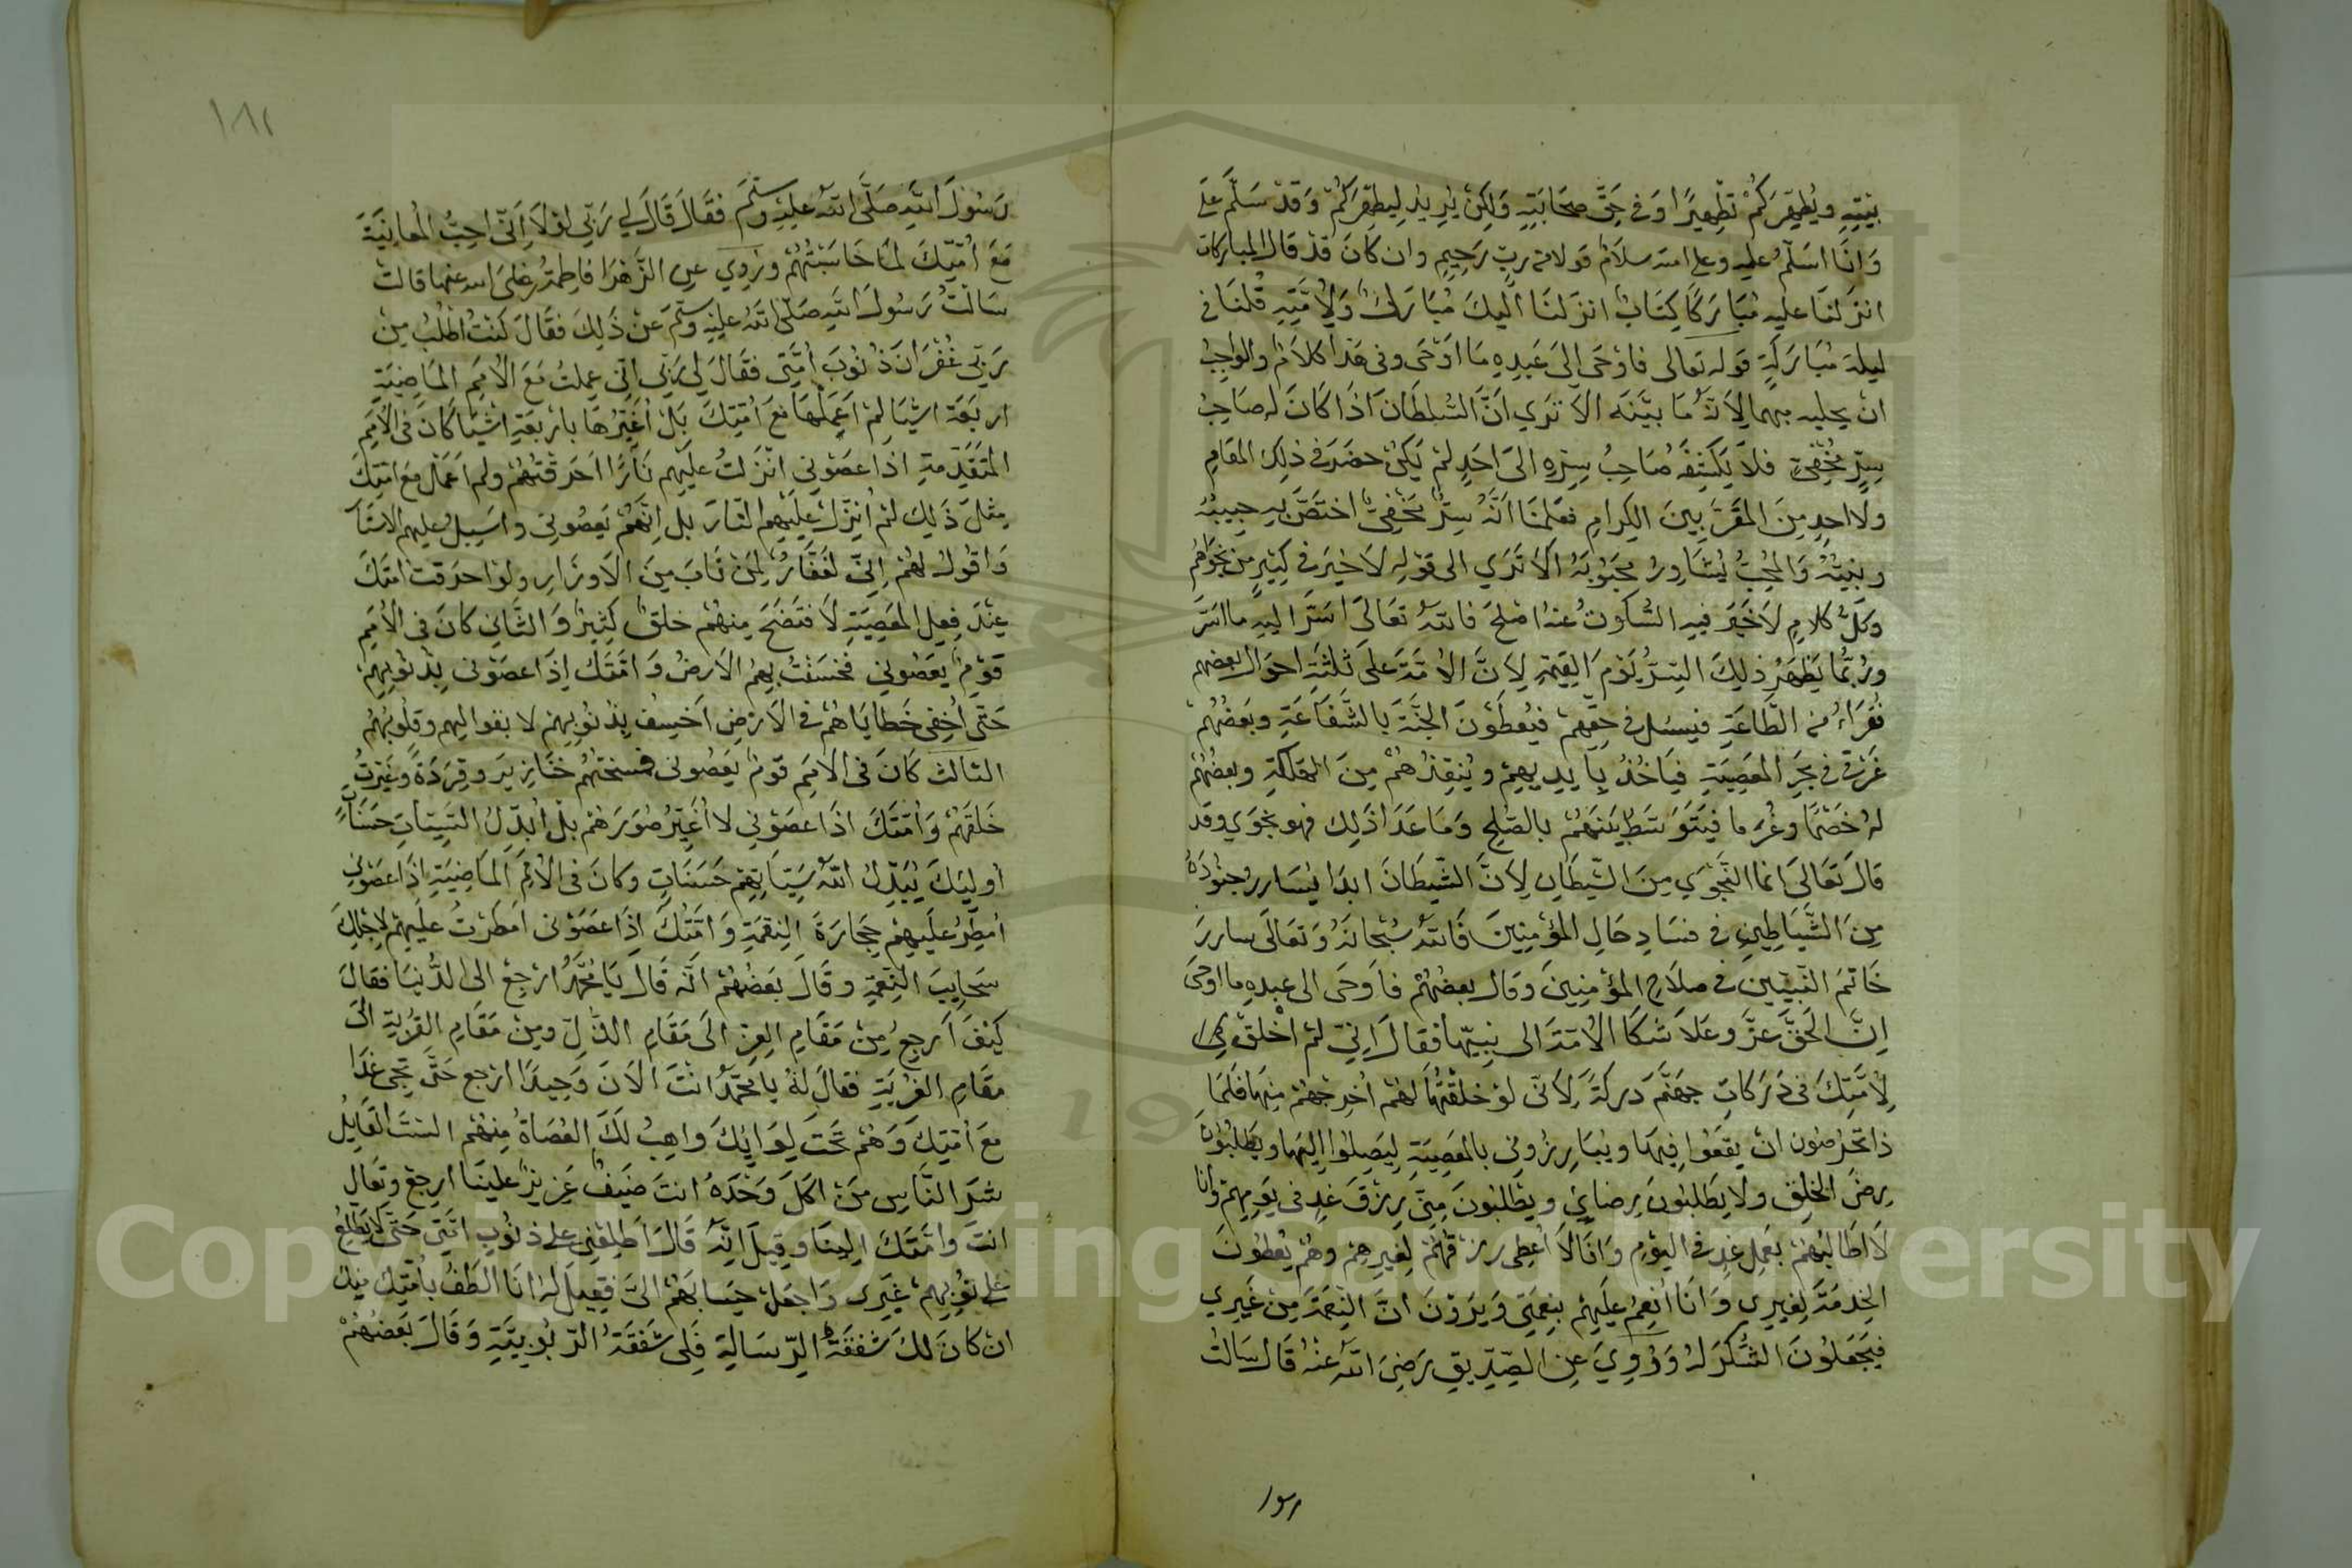 بيته ويُطَهِّرَكُمْ تَطْهِيرًا وَفي حَقِّ صَحَابَتِهِ وَلكِنْ يُرِيدُ لِيُطَهِّرَكُمْ وَقَدْ سَلَّمَ عَلَى
وَانَا اسَلِّمُ عليه وعلى امته سلامٌ قولا من ربٍّ رَحِيمٍ وان كانَ قدْ قال المباركات
انزلنا عليه مُبَارَكًا كِتَابٌ انزلنَا اليكَ مُبَارَكٌ وَلِأُمَّتِهِ قُلنَا في
ليلة مُبَارَكَةٍ قوله تعالى فاوْحَى إلى عَبدِهِ مَا اَوْحَى وفي هَذا كلامٌ والواجبُ
ان بينه الا تَرَي اَنَّ السُّلطَانَ اذا كَانَ له صَاحِبُ
سِرٍّ مخفي فلا يَكشِفُ صَاحِبُ سِرِّهِ الىَ احَدٍ لَمْ يَكُنْ حضرَ في ذلك المقامِ
ولا احدٍ مِنَ المقرَّبينَ الكِرامِ فعَلِمنَا اَنَّهُ سِرٌّ مَخْفِيٌّ اختَصَّ به حبيبُهُ
وَالمُحِبُّ يُشَاوِرُ مَحبُوبَهُ الا تَرَي الى قَوْلِهِ لا خيرَ في كثيرٍ من نجْوَاهُمْ
وكلُّ كلامٍ لا خَيرَ فيهِ السُّكوتُ عنهُ اصْلَحُ فالله تعَالَى اَسَرَّ اليهِ ما اسَرَّ
ورُبَّمَا يَظْهَرُ ذلِكَ السِّرُّ يَوْمَ القِيمَةِ لِاَنَّ الاُمَّةَ علَى ثلثَةِ احوَال بعضهم
فُقَرَاءُ من الطَّاعَةِ فيسئل في حقِّهِمْ فيُعطَوْنَ الجَنَّةَ بالشَّفَاعَةِ وبَعضُهُمْ
غَرْقى في بَحْرِ المَعصِيَةِ فيَاخُذُ بِايدِيهِمْ ويُنقِذُهُمْ مِنَ الهَلَكَةِ وبعضُهُمْ
لهُ خَصْمًا وغُرَمَا فيَتَوَسَّطُ بَينَهُمْ بالصُّلحِ وَمَا عَدَا ذَلِكَ فهو نجوَي وقد
قالَ تَعَالَى انما النَّجْوَي مِنَ الشَّيطَانِ لِاَنَّ الشَّيطَانَ ابدا يُسَارِرُ جُنُودَهُ
مِنَ الشَّيَاطِينِ في فسَادِ حَالِ المؤْمِنِينَ فَاللهُ سُبْحَانَهُ وَتَعَالَى سارَرَ
خَاتمَ النَّبِيِّينَ في صلاحِ المؤْمِنينَ وقال بعضُهُمْ فاَوحَى الى عبدِهِ ما اوحَى
اِنَّ الحَقَّ عَزَّ وعَلاَ شكَا الاُمَّةَ الى نبيِّهَا فقالَ اِنِّي لَمْ اَخْلُقْ
لِأُمَّتِكَ فى دَرَكاتِ جهَنَّمَ دَركَةً لِاَنِّى لوْ خلقْتُهَا لهُمْ اُخرِجهُمْ مِنهَا فلمَا
ذا يَحرُصُون انْ يقعُوا فيهَا ويُبَارِزُونِى بالمَعصِيَةِ لِيَصِلُوا اليهَا ويَطلُبُونَ
رِضَى الخلقِ ولا يَطلبُونَ رِضَايَ ويطلبُونَ مِنِّى رِزْقَ غدٍ في يَومِهِمْ وانا
لَا اطَالبُهُمْ بعَمَلِ غدٍ في اليَوْمِ وَانَا لاَ اُعطِى رزْقَهُمْ لغَيرِهِمْ وهُمْ يُعطُونَ
الخِدمَةَ لِغيرِي وَانَا اُنْعِمُ عليهِمْ بنِعمَتِى وَيَرَوْنَ انَّ النِّعمَةَ مِنْ غَيرِي
فيَجعَلُونَ الشُّكرَ لهُ وَرُوِيَ عنِ الصِّدِّيقِ رَضِىَ اللهُ عنهُ قالَ سَالتُ
رسول
١٨٢
رَسُولَ اللهِ صَلَّى اللهُ عليْهِ وسلَّمَ فقَالَ قَالَ لِي رَبِّي لوْلاَ اَنِّى احِبُّ المُعَاتَبَةَ
مَعَ اُمَّتِكَ لمَا حَاسَبْتُهُمْ ورُوِي عن الزَّهْرَا فاطِمَةُ رضىَ الله عنها قالت
سَالتُ رَسُولَ اللهِ صَلَّى اللهُ عليْهِ وسلَّمَ عَنْ ذلِكَ فقَالَ كنتُ اطْلُبُ مِنْ
رَبِّي غُفْرَانَ ذُنُوبَ اُمَّتِى فقَالَ لِي رَبِّى انِّى عملتُ مَعَ الاُمَمِ المَاضِيَةِ
اربَعَة اشيَا لمْ اَعمَلْهَا مَعَ اُمَّتِكَ بَلْ اُغَيِّرُهَا بارْبَعَةِ اشْيَا كَانَ فى الاُمَمِ
المتَقَدِّمَةِ اذا عصَوْنِي انْزَلتُ عليهِم نَارًا اَحرَقْتهُمْ ولم اَعمَلْ مَعَ امَّتِكَ
مِثلَ ذَلِكَ لمْ اُنزِّلْ عليهِم النَّارَ بل اِنَّهُمْ يَعصُونِى واُسبِلُ عليهم الاستَارَ
وَاقُولُ لهُمْ اِنِّى لغَفَّارٌ لِمَنْ تَابَ مِنَ الاوزَارِ ولوْ احرَقتُ امتَكَ
عِنْدَ فِعلِ المَعصِيَةِ لافتَضَحَ مِنهُمْ خلقٌ كثيرٌ وَالثَّانِي كانَ فى الاُمَمِ
قوْمٌ يَعصُونِي فخسَفْتُ بهِمُ الارضُ وَامَّتَكَ اِذَا عصَوْنى بِذُنُوبِهِمْ
حَتَّى اُخفِى خَطايَاهُمْ في الاَرْضِ اَخسِفُ بِذُنُوبِهِمْ لا وقلُوبُهُمْ
الثالث كَانَ في الامَمِ قوْمٌ يَعصُونى فمسختُهُمْ خنَازيرَ وقِرَدَةً وغيَّرتُ
خَلقَهُمْ وَامَّتَكَ اذَا عصَوْنِي لا اُغيِّرُ صُوَرَهُمْ بلْ اُبدِّلُ السَّيِّئَاتِ حَسَنَاتٍ
أُولئِكَ يُبَدِّلُ اللهُ سَيِّئَاتِهِمْ حَسَنَاتٍ وكانَ في الاُمَمِ المَاضِيَةِ اِذَا عصَوْنِي
اُمطِرُ عليهِمْ حِجَارَةَ النِّقمَةِ وَامَّتُكَ اِذَا عصَوْنى امطَرْتُ عليهِمْ لِاَجلِكَ
سَحَايِبَ النِّعمَةِ وقَالَ بَعضُهُمْ اَنَّهُ قَالَ يَا مُحَمَّدُ ارْجِعْ الى الدُّنيَا فقالَ
كَيْفَ اَرجِعُ مِنْ مَقَامِ العِزِّ الَى مَقَامِ الذُّلِّ ومِنْ مَقَامِ القُرْبَةِ الَى
مقَامِ الغُرْبَةِ فقالَ لهُ يا مُحَمَّدُ انْتَ الآنَ وَحِيدًا ارْجع حَتَّى تجى غدًا
مَعَ اُمَّتِكَ وَهُمْ تَحتَ لِوَائِكَ واهبُ لَكَ العُصَاةُ مِنهُمْ الستَ القَايِلُ
شرَّ النَّاسِ مَنْ اكَلَ وَحْدَهُ انتَ ضَيْفٌ عَزِيزٌ عليْنَا ارجِعْ وتَعَالِ
انتَ وامَّتُكَ اليْنَا وقِيلَ اِنَّهُ قَالَ اَطلِعْنِى على ذنُوبِ امَّتِى حَتَّى لا يَطلِعُ
على ذنُوبِهِمْ غَيْرِى وَاجعَلْ حِسَابَهُمْ الىَّ فقِيلَ لهُ انَا الطَفُ بامَّتِك منك
انْ كانَ لكَ شَفَقَةُ الرِّسَالةِ فَلِى شَفَقَةُ الرّبُوبِيَّةِ وَقَالَ بَعضُهُمْ
Copyright © King Saud University